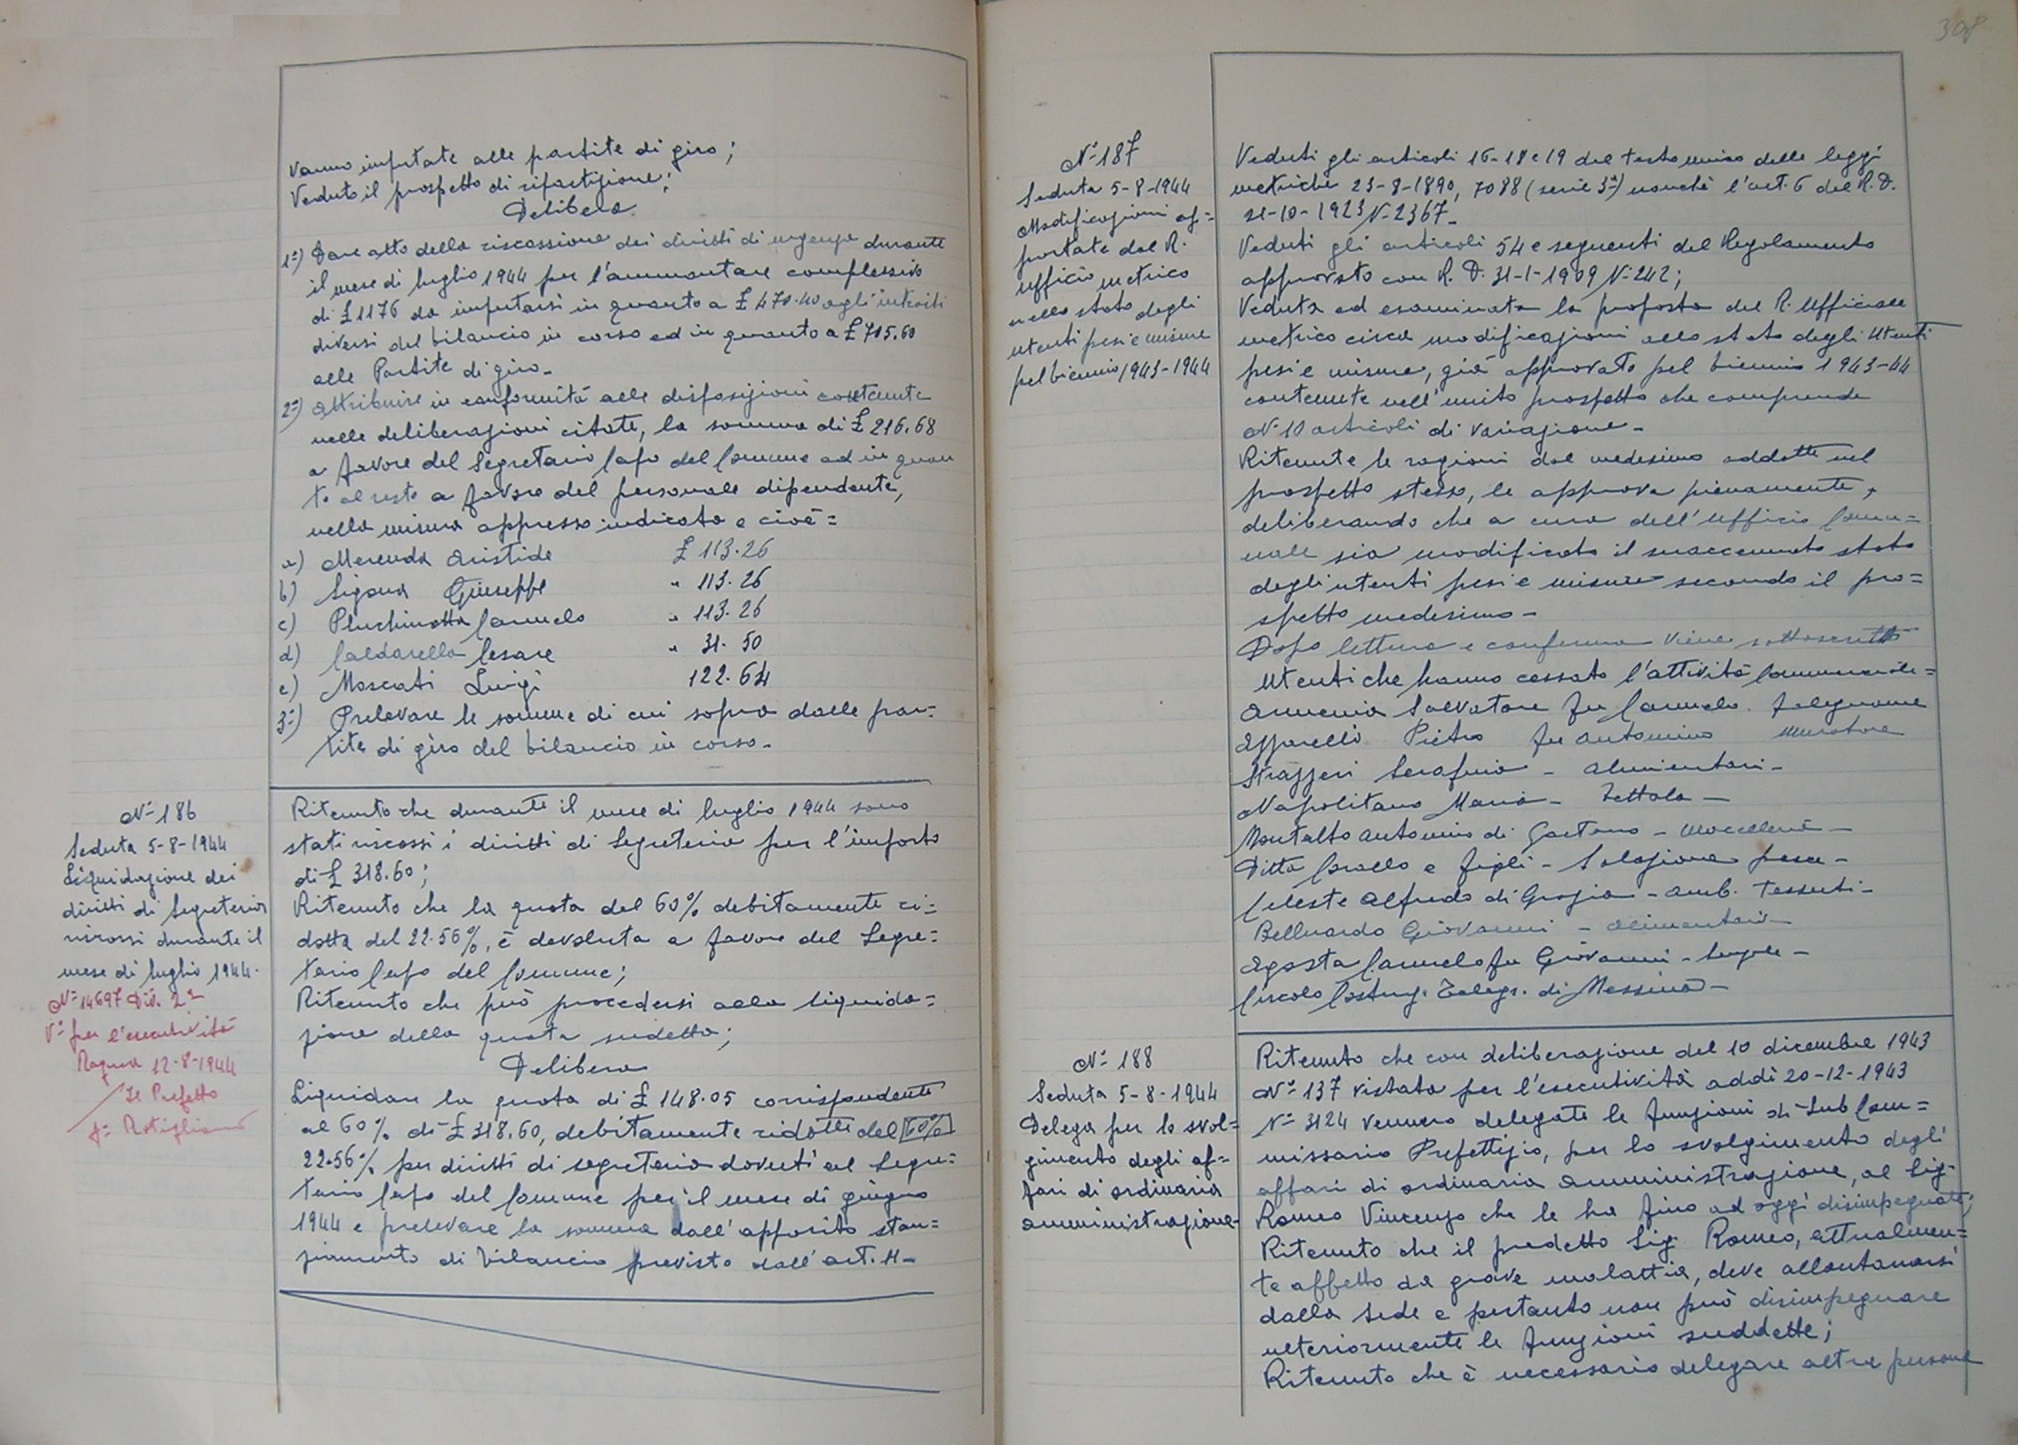 vanno imputate alle partite di giro;
Veduto il prospetto di ripartizione;
Delibera
1º) Dare atto della riscossione dei diritti di urgenza durante
il mese di luglio 1944 per l'ammontare complessivo
di £ 1176 da imputarsi in quanto a £ 470.40 agli introiti
diversi del bilancio in corso ed in quanto a £ 705.60
alle Partite di giro.-
2º) Attribuire in conformità alle disposizioni contenute
nelle deliberazioni citate, la somma di £ 216.68
a favore del Segretario Capo del Comune ed in quan
to al resto a favore del personale dipendente,
nella misura appresso indicata e cioè=
a) Merenda Aristide £ 113.26
b) Sigona Giuseppe " 113.26
c) Pluchinotta Carmelo " 113.26
d) Caldarella Cesare " 31.50
e) Moscati Luigi 122.64
3º) Prelevare le somme di cui sopra dalle par=
tite di giro del bilancio in corso.-
Nº 186
Seduta 5-8-1944
Liquidazione dei
diritti di Segreteria
riscossi durante il
mese di luglio 1944.
Nº 14697 Div. 2ª
Vº per l'esecutività
Ragusa 12-8-1944
Il Prefetto
Ritenuto che durante il mese di luglio 1944 sono
stati riscossi i diritti di Segreteria per l'importo
di £ 318.60;
Ritenuto che la quota del 60% debitamente ri=
dotta del 22.56%, è devoluta a favore del Segre=
tario Capo del Comune;
Ritenuto che può procedersi alla liquida=
zione della quota sudetta;
Delibera
Liquidare la quota di £ 148.05 corrispondente
al 60% di £ 318.60, debitamente ridotti del 60%
22.56% per diritti di segreteria dovuti al Segre=
tario Capo del Comune per il mese di giugno
1944 e prelevare la somma dall'apposito stan=
ziamento di bilancio previsto dall'art.
Nº 187
Seduta 5-8-1944
Modificazioni ap=
portate dal R.
ufficio metrico
nello stato degli
utenti pesi e misure
pel biennio 1943-1944
Veduti gli articoli 16-18 e 19 del testo unico delle leggi
metriche 23-8-1890, 7088 (serie 3ª) nonchè l'art. 6 del R.D.
31-10-1923 N. 2367.-
Veduti gli articoli 54 e seguenti del Regolamento
approvato con R.D. 31-1-1909 N. 242;
Veduta ed esaminata la proposta del R. Ufficiale
metrico circa modificazioni allo stato degli utenti
pesi e misure, già approvato pel biennio 1943-44
contenute nell'unito prospetto che comprende
Nº 10 articoli di variazione.-
Ritenute le ragioni dal medesimo addotte nel
prospetto stesso, le approva pienamente,
deliberando che a cura dell'Ufficio Comu=
nale sia modificato il suaccennato stato
degli utenti pesi e misure secondo il pro=
spetto medesimo.-
Dopo lettura e conferma viene sottoscritto
Utenti che hanno cessato l'attività Commerciale=
Armenia Salvatore fu Carmelo. falegname
Pietro fu Antonino muratore
Strazzeri Serafina - alimentari-
Napolitano Maria -
Montalto Antonino di Gaetano -
Ditta Corallo e figli - Salagione pesce -
Celeste Alfredo di Grazia - amb. tessuti-
Belluardo Giovanni - alimentari
Agosta Carmelo fu Giovanni -
Circolo Costruz. Telegr. di Messina-
Nº 188
Seduta 5-8-1944
Delega per lo svol=
gimento degli af=
fari di ordinaria
amministrazione-
Ritenuto che con deliberazione del 10 dicembre 1943
Nº 137 vistata per l'esecutività addì 20-12-1943
Nº 3124 vennero delegate le funzioni di Sub Com=
missario Prefettizio, per lo svolgimento degli
affari di ordinaria amministrazione, al Sig.
Romeo Vincenzo che le ha fino ad oggi disimpegnate;
Ritenuto che il predetto Sig. Romeo, attualmen=
te affetto da grave malattia, deve allontanarsi
dalla sede e pertanto non può disimpegnare
ulteriormente le funzioni suddette;
Ritenuto che è necessario delegare altra persona